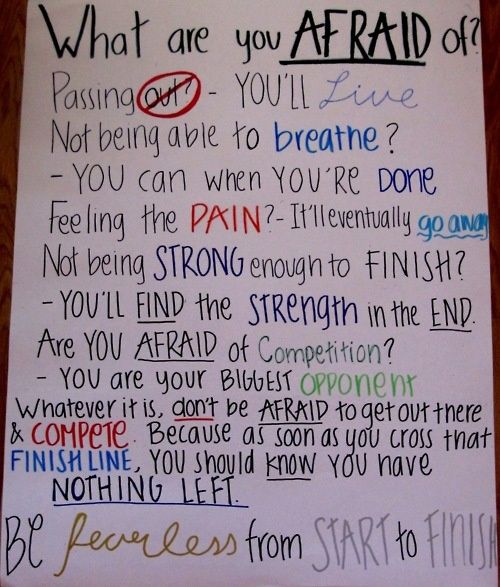 What are you AFRAID of?
Passing out? - YOU'LL Live
Not being able to breathe?
- YOU can when YOU'RE DONE
Feeling the PAIN? - It'll eventually go away
Not being STRONG enough to FINISH?
- YOU'LL FIND the STRength in the END.
Are YOU AFRAID of Competition?
- YOU are your BIGGEST OPPONENT
Whatever it is, don't be AFRAID to get out there
& COMPETE. Because as soon as you cross that
FINISH LINE, YOU should know YOU have
NOTHING LEFT.
BE fearless from START to FINISH